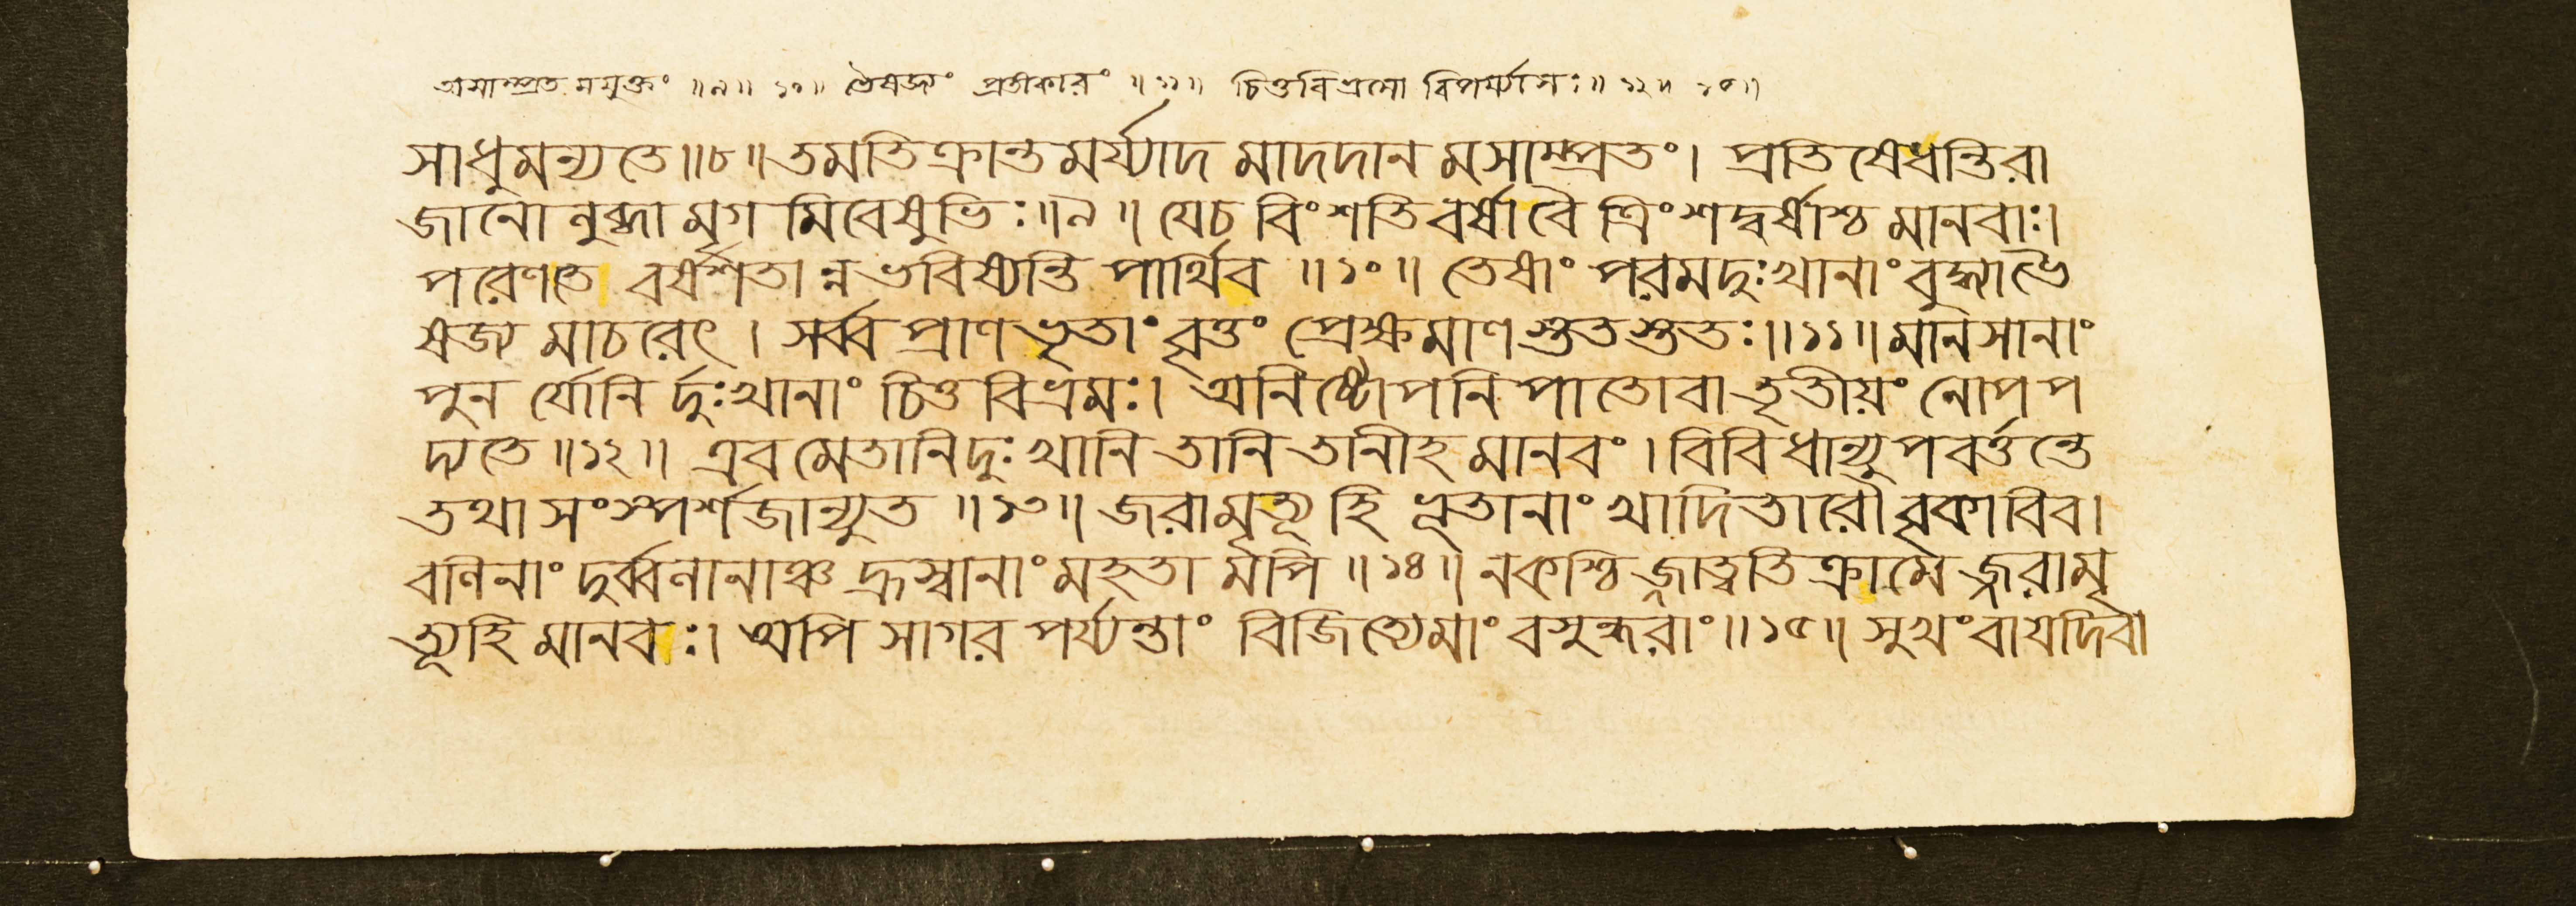 অসাম্প্রত মযুক্তং ॥৯॥ ১০॥ ভৈষজ্যং প্রতীকারং ॥১১॥ চিত্তবিভ্রমো বিপর্য্যাসঃ॥ ১২॥ ১৩॥
সাধুমন্যতে॥৮॥তমতিক্রান্তমর্য্যাদ মাদদান মসাম্প্রতং। প্রতিষেধন্তিরা
জানো লুব্ধা মৃগ মিবেষুভিঃ॥৯॥ যেচ বিংশতিবর্ষা বৈ ত্রিংশদ্বর্ষাশ্চ মানবাঃ।
পরেণতে বর্ষশতান্ন ভবিষ্যন্তি পার্থিব ॥১০॥ তেষাং পরমদুঃখানাং বুদ্ধ্যাভৈ
ষজ্য মাচরেৎ। সর্ব্বপ্রাণভৃতাং বৃত্তং প্রেক্ষমাণ স্তুতস্তুতঃ॥১১॥ মানসানাং
পুন র্যোনি র্দুঃখানাং চিত্তবিভ্রমঃ। অনিষ্টোপনিপাতোবা তৃতীয়ং নোপপ
দ্যতে॥১২॥ এবমেতানিদুঃখানি তানি তানীহ মানবং। বিবিধান্যুপবর্ত্তন্তে
তথা সংস্পর্শজান্যুত ॥১৩॥ জরামৃত্যূ হি ভূতানাং খাদিতারৌ বৃকাবিব।
বলিনাং দুর্ব্বলানাঞ্চ হ্রস্বানাং মহতা মপি ॥১৪॥ নকশ্চি জ্জাত্বতিক্রামে জ্জরামৃ
ত্যূহি মানবঃ। অপি সাগর পর্য্যন্তাং বিজিত্যেমাং বসুন্ধরাং॥১৫॥ সুখং বাযদিবা